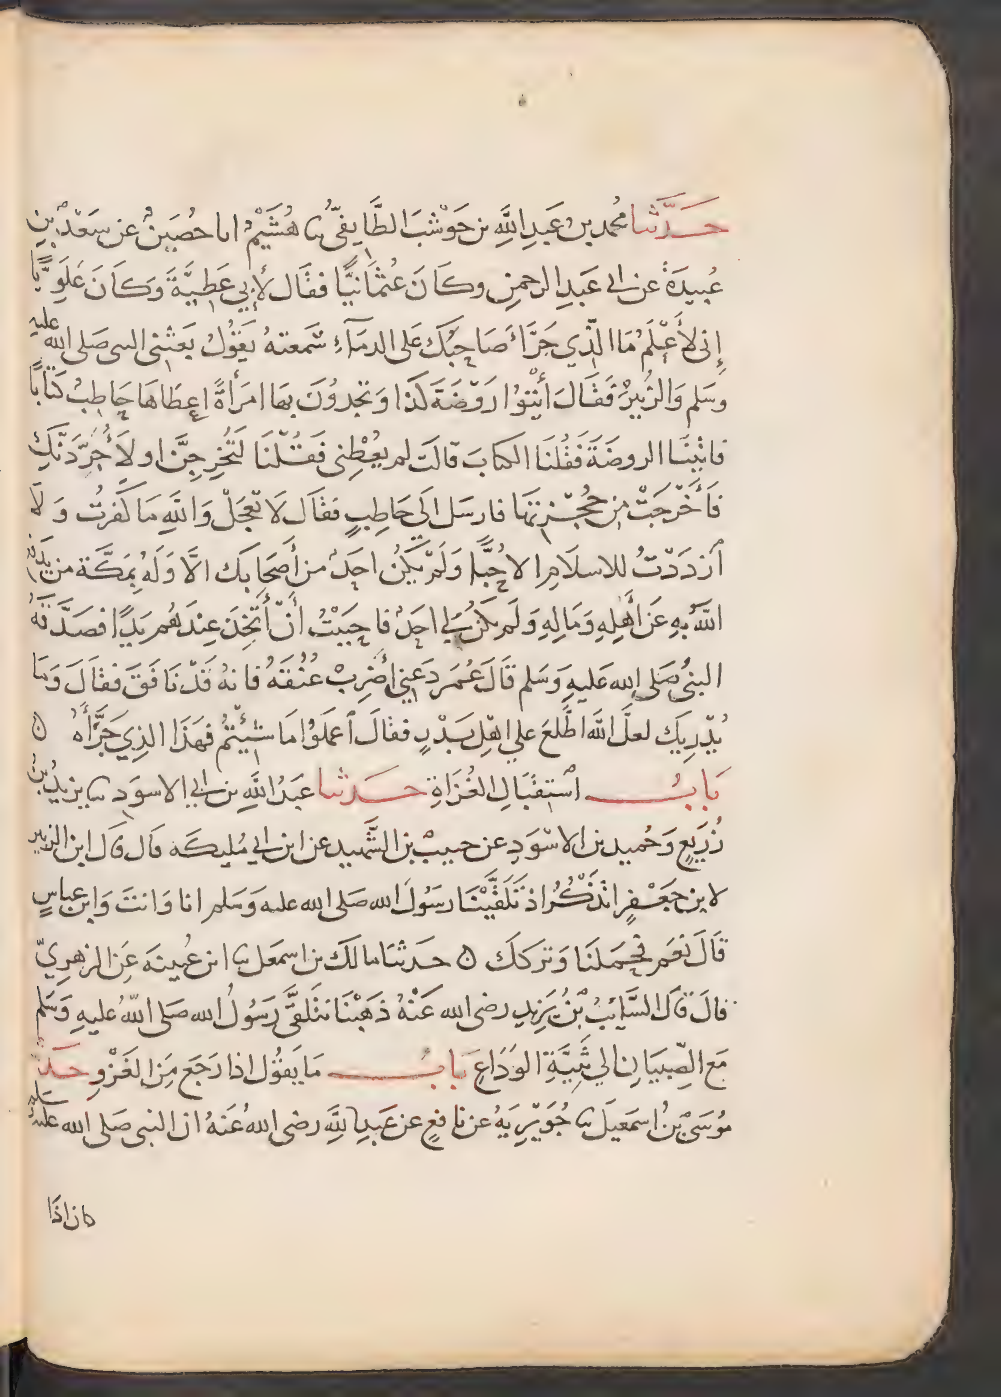 حَدَّثنا محُمد بن عَبدِ اللَّهِ بن حَوْشَبَ الطَّايفيُّ ثنا هُشَيْمٌ انا حُصَينٌ عن سَعْدِ بنِ
عُبيدَةَ عن ابي عَبدِ الرحمنِ وكَانَ عُثمَانيًّا فقَال لأبي عَطِيَّةَ وَكَانَ عَلَوِيًّا
إِني لأَعْلَمُ مَا الَّذِي جَرَّاَ صَاحِبُكَ عَلى الدمَآءِ سَمعتهُ يَقوُلُ بَعَثني النبي صَلى الله عليه
وسَلم وَالزُّبيرَ فَقَالَ أئْتوُا رَوْضَةَ كَذا وَتجدُونَ بهَا امرَأةً اعطَاهَا حَاطِبٌ كتَابًا
فاتينَا الروضَةَ فَقُلنَا الكتابَ قالَت لم يُعْطِنى فَقُلْنَا لَتُخرِجِنَّ او لَأُجَرِّدَنَّكِ
فَأَخْرجَتْ مِن حُجْزتهَا فارسَل الَي حَاطِبٍ فقَال لَا تعْجَلْ وَاللَّهِ مَا كَفرتُ وَلَا
ٱزدَدْتُ للاسلَامِ الا حُبًّا وَلَمْ يَكُنْ احَدٌ من أَصحَابك الَّا وَلَهُ بمَكَّة من يَدفعُ
اللَّهُ بهِ عَن أَهْلِهِ وَمَالِهِ وَلَم يَكُنْ لي احَدٌ فاحبَبْتُ أَنْ أَتَّخِذَ عِندَهُم يَدًا فصَدَّقهُ
النبيُّ صَلى الله عَليهِ وَسَلم قَالَ عُمَر دَعني أضْرِبْ عُنُقَهُ فانهُ قَدْ نَافَقَ فقَالَ وَمَا
يُدْرِيكَ لعلَّ اللَّهَ اطَّلعَ علي اهْل بَدْرٍ فقالَ ٱعمَلوُا مَا شئْتُمْ فهَذَا الذِي جَرَّأَهُ ۞
بَابُ استقبَالِ الغُزَاةِ حَدثنا عَبدُ اللَّهِ بن ابي الاسوَد ثنا يزيدُ بن
زُرَيعٍ وَحُميد بن الاسْوَدِ عن حبيب بن الشَّهيد عن ابن ابي مُليكَه قال قال ابن الزبير
لابن جَعْفرٍ اتَذْكُرُ اذ تَلَقَّيْنَا رَسُولَ الله صَلى الله عليه وَسَلم انا وَانتَ وَابن عباسٍ
قَالَ نعَم فحمَلَنَا وَتركَكَ ۞ حَدثنا مالك بن اسمعَل ثنا ابن عُيينَه عَنِ الزهرِيّ
قالَ قَالَ السَّايبُ بْنُ يَزيدِ رضى الله عَنْهُ ذهَبْنَا نتَلَقَّي رَسُولُ الله صَلى اللّه عليهِ وَسَلم
مَع الصِّبيَانِ الي ثنيَّةِ الوَدَاعِ بَابُ مَا يقوُل اذا رَجَع مِنَ الغَزْوِ حَدثنا
مُوسَي بنُ اسمَعيلَ ثنا جُوَيْرِيَهُ عن نَافعٍ عن عَبدِ اللَّهِ رضى اللهُ عَنهُ ان النبي صَلى الله عليه وسلم
كان اذَا